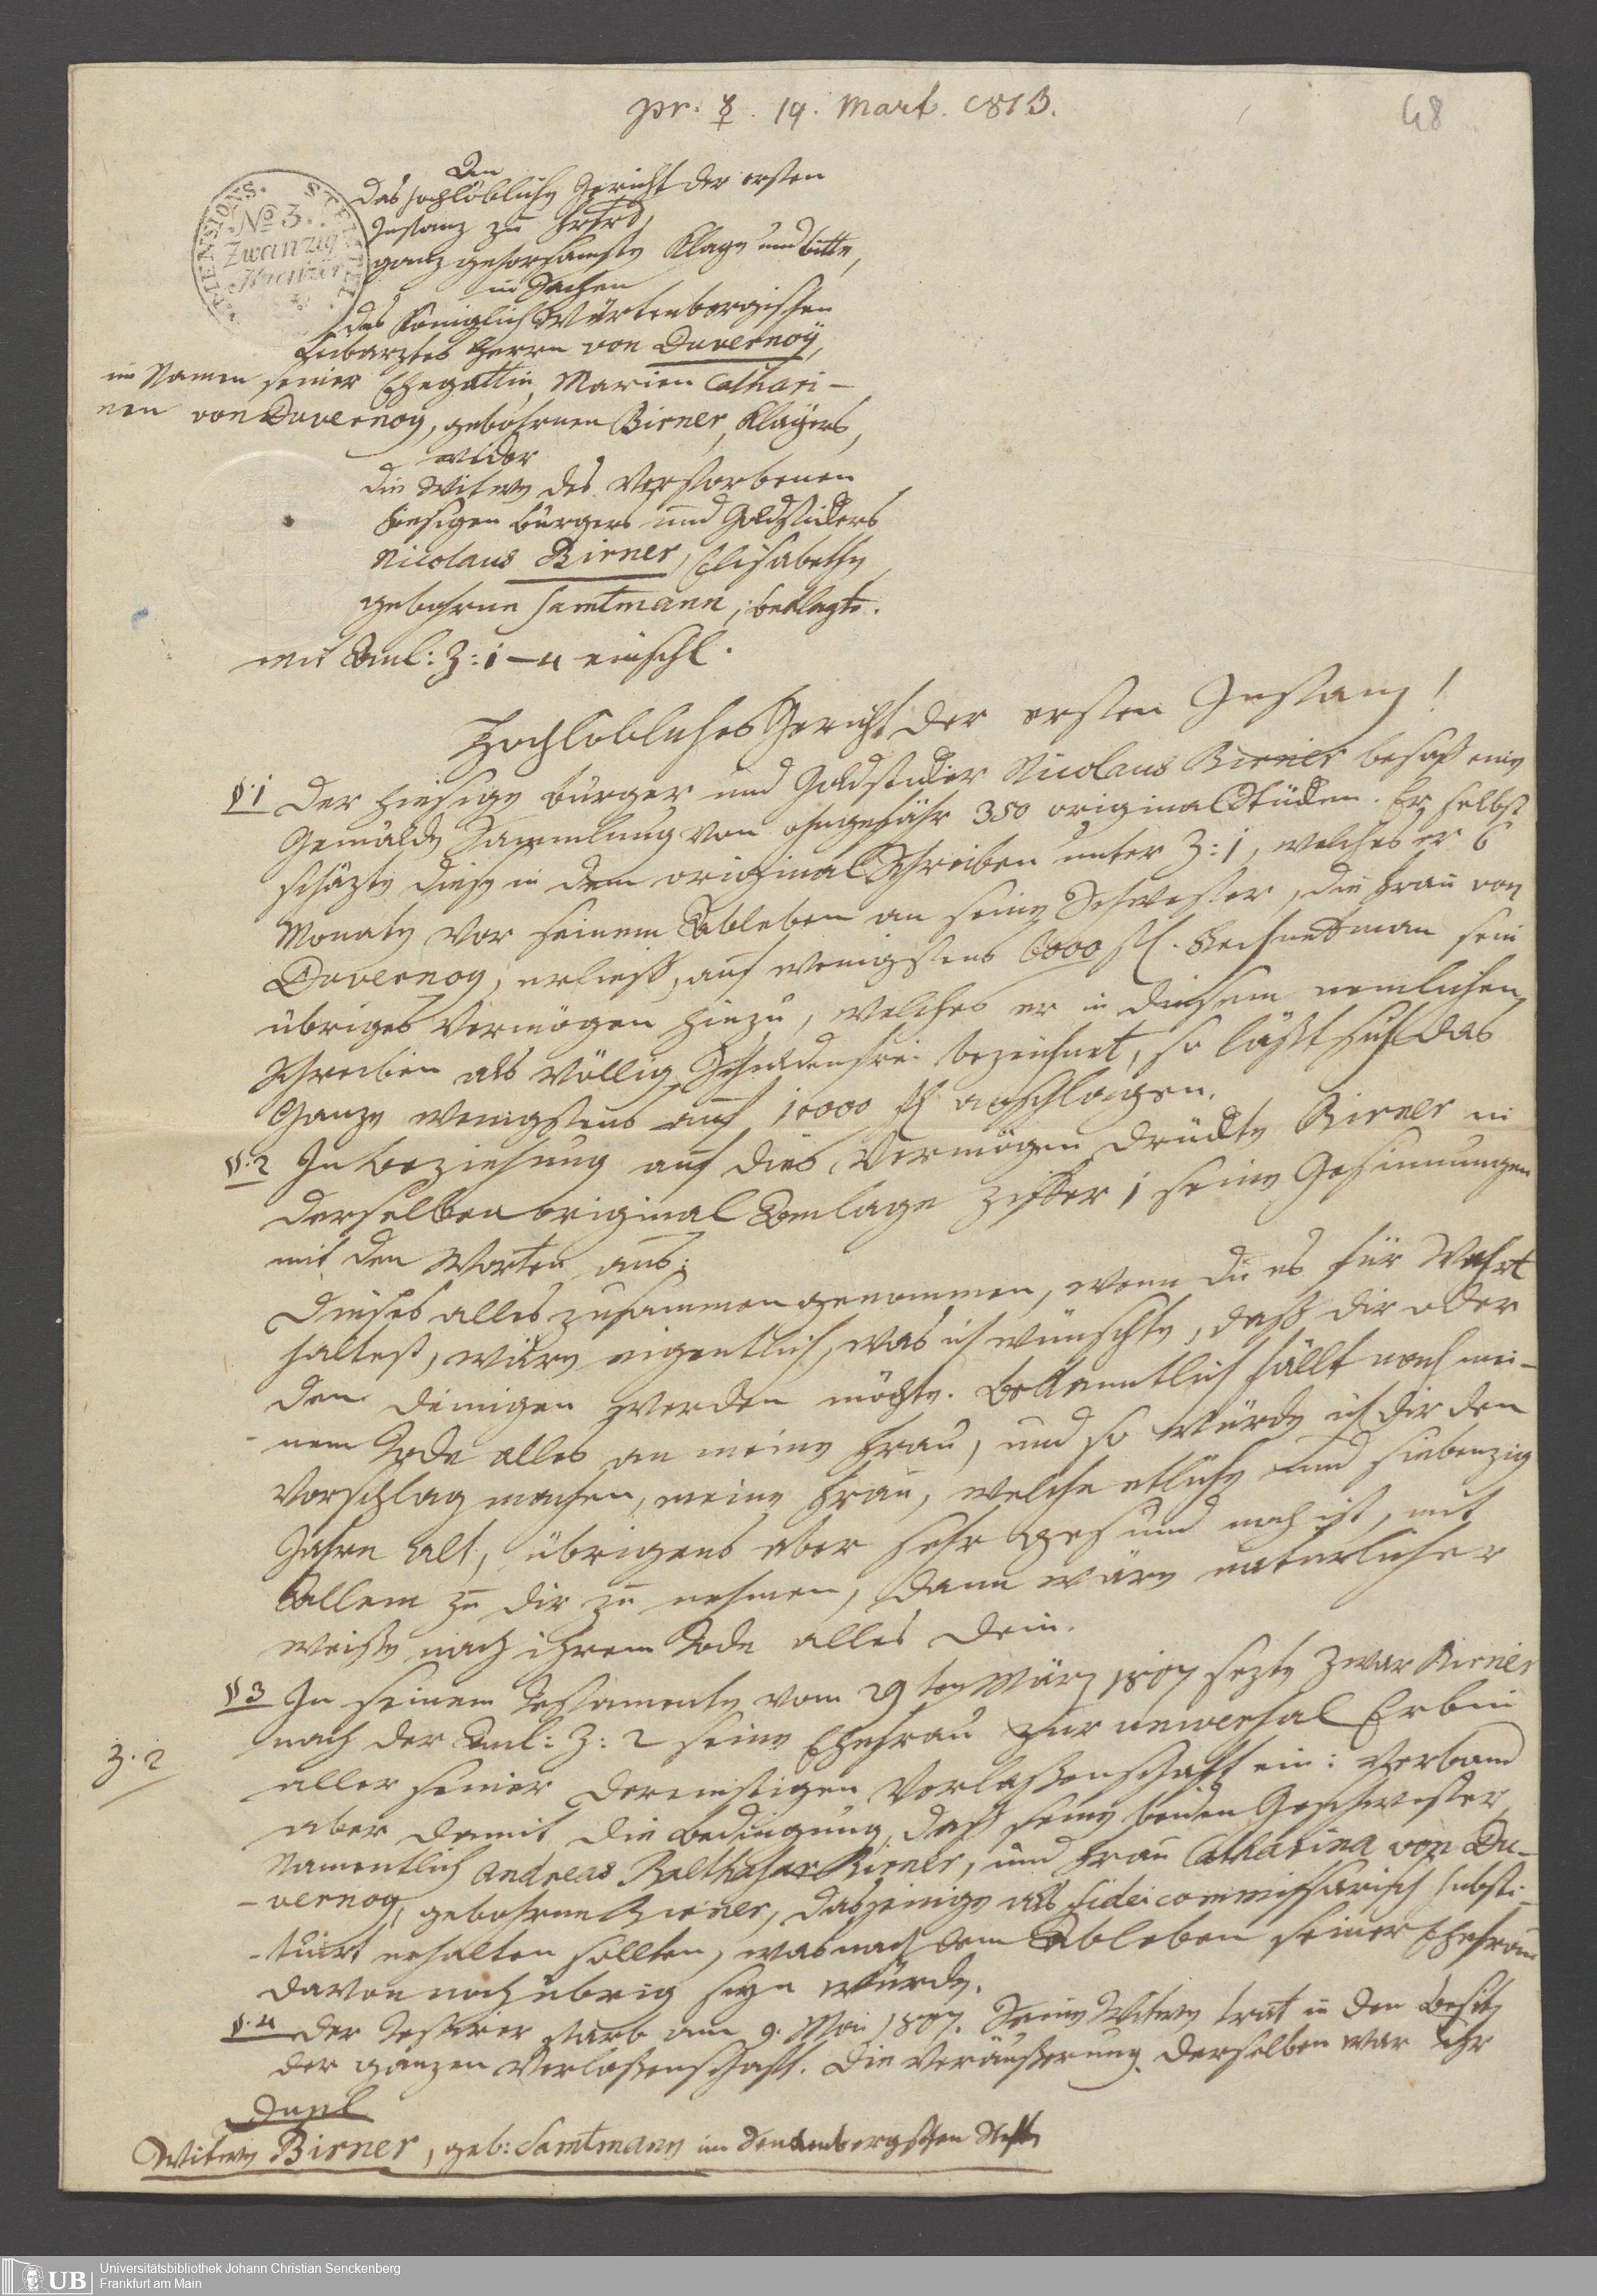 pr. ♀. 19. Mart. 1813.
48
DIMENSIONS. STEMPEL.
No 3.
Zwanzig
Kreutzer
An
das hochlöbliche Gericht der ersten
Instanz zu
ganz gehorsamste Klage und Bitte,
in Sachen
des Königlich Würtenbergischen
Leibarztes Herrn von Duvernoÿ,
im Namen seiner Ehegattin, Marien Cathari-
nen von Duvernoy, gebohrnen Birner, Klägers,
wider
die Witwe des verstorbenen
hiesigen Bürgers und Goldstickers
Nicolaus Birner, Elisabethe
gebohrne Samtmann, Beklagte.
mit Anl: Z: 1 – 4 einschl.
Hochlöbliches Gericht der ersten Instanz!
§ 1 Der hiesige Bürger und Goldsticker Nicolaus Birner besaß eine
Gemälde Sammlung von ohngefähr 350 original Stücken. Er selbst
schäzte diese in dem original Schreiben unter Z: 1, welches er 6
Monate vor seinem Ableben an seine Schwester, die Frau von
Duvernoy, erließ, auf wenigstens 6000 fl. Rechnet man sein
übriges Vermögen hinzu, welches er in diesem nemlichen
Schreiben als völlig Schuldenfrei bezeichnet, so läßt sich das
Ganze wenigstens auf 10000 fl anschlagen.
§. 2 In Beziehung auf dies Vermögen drückte Birner in
derselben original Anlage Ziffer 1 seine Gesinnungen
mit den Worten aus:
Dieses alles zusammengenommen, wenn du es für Wehrt
haltest, wäre eigentlich, was ich wünschte, daß dir oder
den deinigen werden möchte. Bekanntlich fällt nach mei-
nem Tode alles an meine Frau, und so würde ich dir den
Vorschlag machen, meine Frau, welche etliche und siebenzig
Jahre alt, übrigens aber sehr gesund noch ist, mit
Allem zu dir zu nehmen, dann wäre natürlicher
weiße nach ihrem Tode alles dein.
§ 3 In seinem Testamente vom 29ten März 1807 sezte zwar Birner
Z. 2
nach der Anl: Z: 2 seine Ehefrau zur universal Erbin
aller seiner dereinstigen Verlaßenschaft ein: verband
aber damit die Bedingung, daß seine beiden Geschwister,
Namentlich Andreas Balthasar Birner, und Frau Catharina von Du-
-vernoy, gebohrne Birner, dasjenige als fideicommissarisch substi-
-tuirt erhalten sollten, was nach dem Ableben seiner Ehefrau
davon noch übrig seyn würde.
§. 4 Der Testirer starb am 9. Mai 1807. Seine Witwe trat in den Besitz
der ganzen Verlaßenschaft. Die Veräußerung derselben war ihr
Dupl
Witwe Birner, geb: Samtmann im Senckenbergschen Stift
UB Universitätsbibliothek Johann Christian Senckenberg
Frankfurt am Main